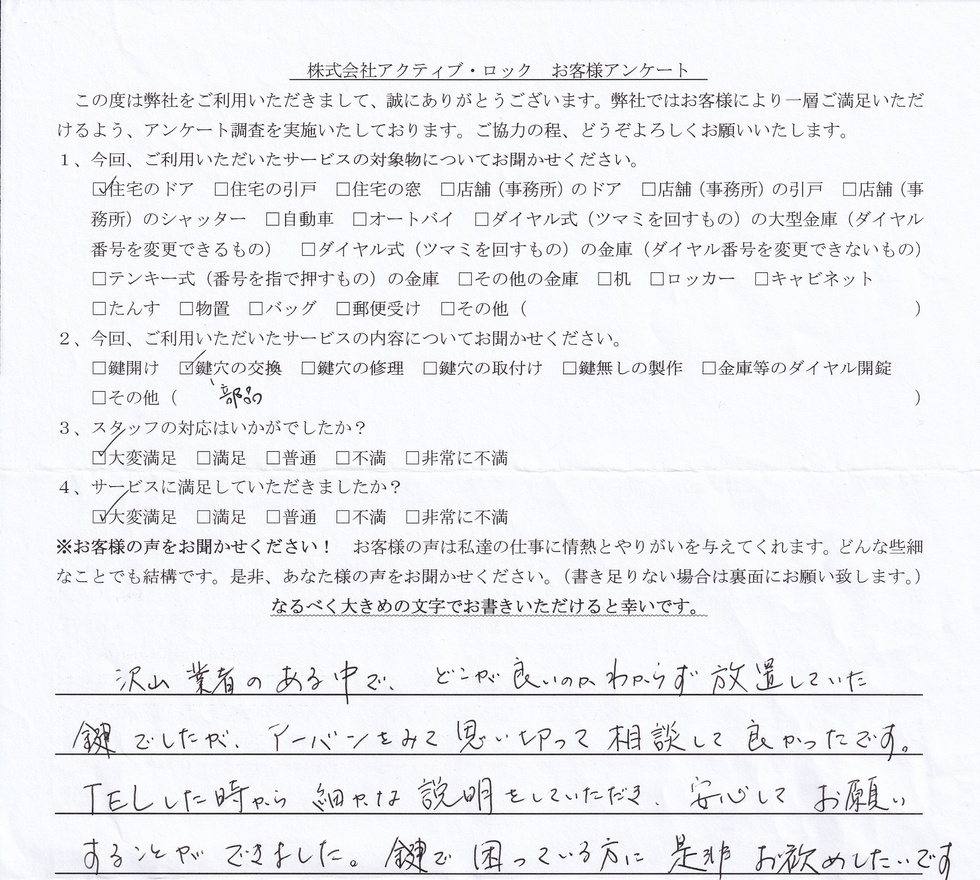 株式会社アクティブ・ロック　お客様アンケート
この度は弊社をご利用いただきまして、誠にありがとうございます。弊社ではお客様により一層ご満足いただ
けるよう、アンケート調査を実施いたしております。ご協力の程、どうぞよろしくお願いいたします。
１、今回、ご利用いただいたサービスの対象物についてお聞かせください。
☑住宅のドア　□住宅の引戸　□住宅の窓　□店舗（事務所）のドア　□店舗（事務所）の引戸　□店舗（事
務所）のシャッター　□自動車　□オートバイ　□ダイヤル式（ツマミを回すもの）の大型金庫（ダイヤル
番号を変更できるもの）　□ダイヤル式（ツマミを回すもの）の金庫（ダイヤル番号を変更できないもの）
□テンキー式（番号を指で押すもの）の金庫　□その他の金庫　□机　□ロッカー　□キャビネット
□たんす　□物置　□バッグ　□郵便受け　□その他（　　　　　）
２、今回、ご利用いただいたサービスの内容についてお聞かせください。
□鍵開け　☑鍵穴の交換　□鍵穴の修理　□鍵穴の取付け　□鍵無しの製作　□金庫等のダイヤル開錠
□その他（　　部品の　　）
３、スタッフの対応はいかがでしたか？
☑大変満足　□満足　□普通　□不満　□非常に不満
４、サービスに満足していただきましたか？
☑大変満足　□満足　□普通　□不満　□非常に不満
※お客様の声をお聞かせください！　お客様の声は私達の仕事に情熱とやりがいを与えてくれます。どんな些細
なことでも結構です。是非、あなた様の声をお聞かせください。（書き足りない場合は裏面にお願い致します。）
なるべく大きめの文字でお書きいただけると幸いです。
沢山業者のある中で、どこが良いのかわからず放置していた
鍵でしたが、アーバンをみて思い切って相談して良かったです。
TELした時から細かな説明をしていただき、安心してお願い
することができました。鍵で困っている方に是非お歓めしたいです